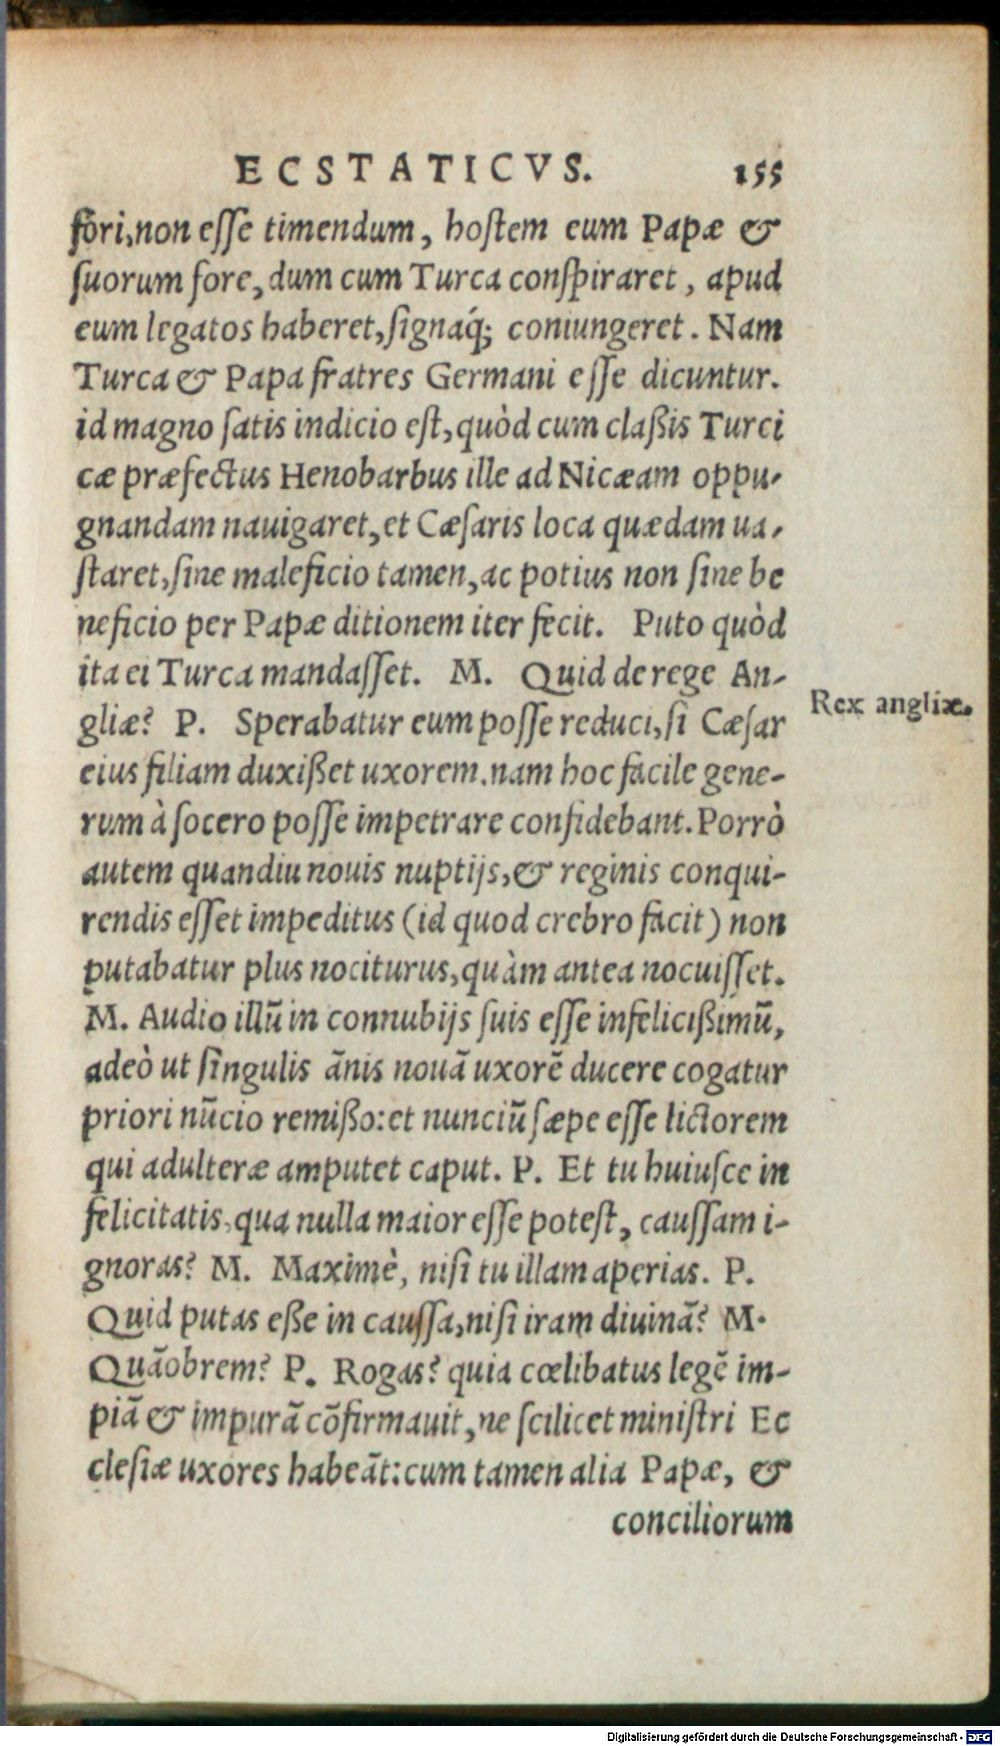 ECSTATICVS. 155
fori, non esse timendum, hostem eum Papæ &
suorum fore, dum cum Turca conspiraret, apud
eum legatos haberet, signaq́; coniungeret. Nam
Turca & Papa fratres Germani esse dicuntur.
id magno satis indicio est, quòd cum claßis Turci
cæ præfectus Henobarbus ille ad Nicæam oppu-
gnandam nauigaret, et Cæsaris loca quædam ua-
staret, sine maleficio tamen, ac potius non sine be
neficio per Papæ ditionem iter fecit. Puto quòd
ita ei Turca mandasset. M. Quid de rege An-
gliæ? P. Sperabatur eum posse reduci, si Cæsar
Rex angliæ.
eius filiam duxißet uxorem. nam hoc facile gene-
rum à socero posse impetrare confidebant. Porrò
autem quandiu nouis nuptijs, & reginis conqui-
rendis esset impeditus (id quod crebro facit) non
putabatur plus nociturus, quàm antea nocuisset.
M. Audio illũ in connubijs suis esse infelicißimũ,
adeò ut singulis ãnis nouã uxorẽ ducere cogatur
priori nũcio remißo: et nunciũ sæpe esse lictorem
qui adulteræ amputet caput. P. Et tu huiusce in
felicitatis, qua nulla maior esse potest, caussam i-
gnoras? M. Maximè, nisi tu illam aperias. P.
Quid putas eße in caussa, nisi iram diuinã? M.
Quãobrem? P. Rogas? quia cœlibatus legẽ im-
piã & impurã cõfirmauit, ne scilicet ministri Ec
clesiæ uxores habeãt: cum tamen alia Papæ, &
conciliorum
Digitalisierung gefördert durch die Deutsche Forschungsgemeinschaft - DFG